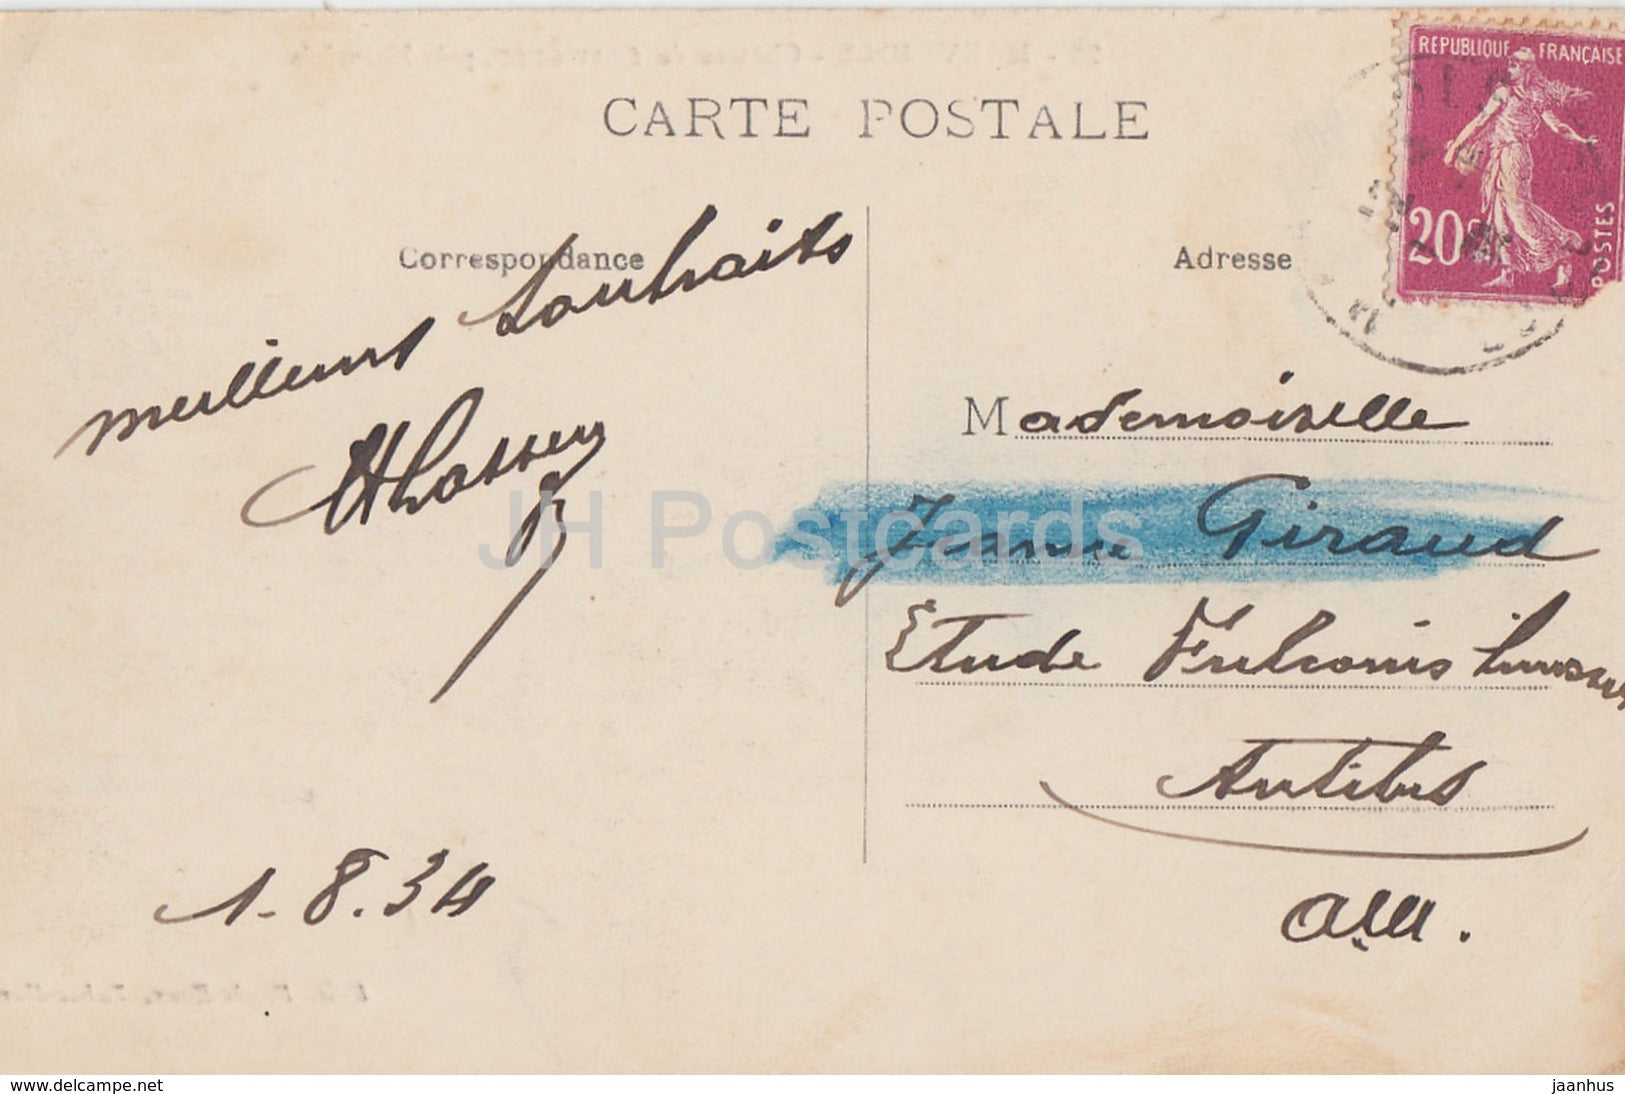 CARTE POSTALE
Correspondance
Adresse
REPUBLIQUE FRANÇAISE
20c
POSTES
meilleurs souhaits
Mademoiselle
Jeanne Giraud
Etude Fulconis
Antibes
A.M.
1.8.34
JH Postcards
www.delcampe.net
jaanhus